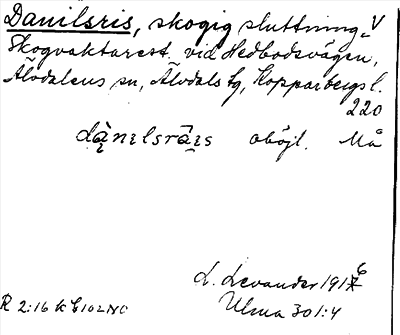 Danilsris, skogig sluttning V
Skogvaktarest. vid Hedbodsvägen,
Älvdalens sn, Älvdals tg, Kopparbergs l.
220
dą̀nɪlsrâɪ̯s oböjl. Må
L. Levander 1916
R 2:16 k G102NO Ulma 301:4